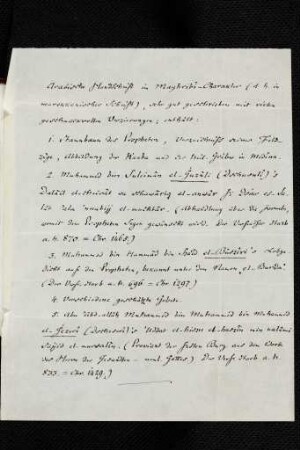 Arabische Handschrift in Maghribi-Charakter (d. h. in
marokkanischer Schrift), sehr gut geschrieben mit vielen
geschmackvollen Verzierungen; enthält:
1. Stammbaum des Propheten, Verzeichniss seiner Feld-
züge, Abbildung der Kanzel und der heil. Gräber in Medina.
2. Muhammad ben Suleimân el-Ǵazûlî (Dschazuli)'s
Dalâïl el-khairât wa schawâriq el-anwâr fî
'ala 'nnabijj el-mukhtâr. (Abhandlung über die Formeln,
womit dem Propheten Segen gewünscht wird. Der Verfasser starb
a. H. 870 = Chr. 1465.)
3. Muhammad ben Saîd el-Bûsîrî's Lobge-
dicht auf den Propheten, bekannt unter dem Namen „el-Burda"
(Der Verf. starb a. H. 696 = Chr. 1297)
4. Verschiedene Gebete.
5. Abu Abd-allâh Muhammad bin Muhammad bin Muhammad
el-Ǵazarî (Dschazarî)'s 'Uddat el-hisn el-hasîn min kalâmi
Sajjid el-mursalîn. (Proviant der festen Burg aus den Worten
des Herrn der Gesandten Gottes) Der Verf. starb a. H.
833 = Chr. 1429.)